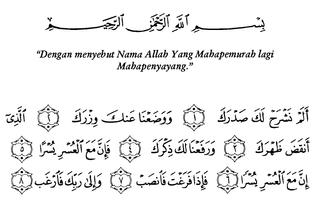 بِسْمِ اللَّهِ الرَّحْمَٰنِ الرَّحِيمِ
“Dengan menyebut Nama Allah Yang Mahapemurah lagi
Mahapenyayang.”
أَلَمْ نَشْرَحْ لَكَ صَدْرَكَ ﴿١﴾ وَوَضَعْنَا عَنكَ وِزْرَكَ ﴿٢﴾ الَّذِي
أَنقَضَ ظَهْرَكَ ﴿٣﴾ وَرَفَعْنَا لَكَ ذِكْرَكَ ﴿٤﴾ فَإِنَّ مَعَ الْعُسْرِ يُسْرًا ﴿٥﴾
إِنَّ مَعَ الْعُسْرِ يُسْرًا ﴿٦﴾ فَإِذَا فَرَغْتَ فَانصَبْ ﴿٧﴾ وَإِلَىٰ رَبِّكَ فَارْغَب ﴿٨﴾